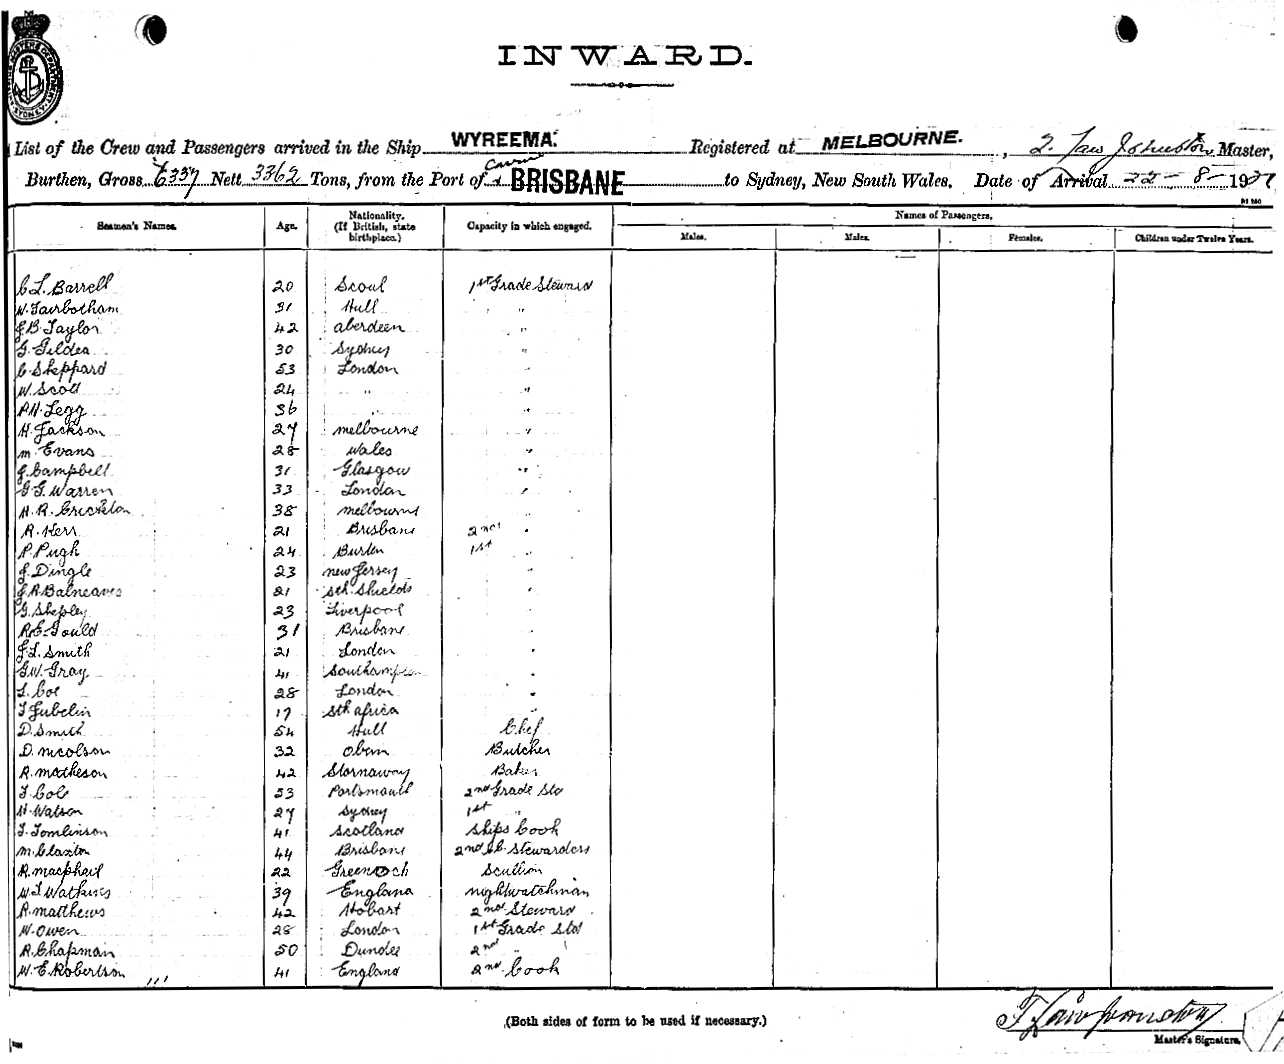 INWARD.
List of the Crew and Passengers arrived in the Ship WYREEMA. Registered at MELBOURNE. , Law Johnston Master,
Burthen, Gross 6337 Nett 3362 Tons, from the Port of Cairns & BRISBANE to Sydney, New South Wales. Date of Arrival 22-8-192
Seamen's Names. Age. Nationality. (If British, state birthplace.) Capacity in which engaged. Names of Passengers.
Males. Males. Females. Children under Twelve Years.
C L. Barrell 20 1st Grade Steward
W. Fairbotham 31 Hull "
J B Taylor 42 aberdeen "
G. Gildea 30 Sydney "
C. Sheppard 53 London "
W. Scott 24 " "
P.H. Legg 36 " "
H. Jackson 27 melbourne "
m. Evans 28 Wales "
J. Campbell 31 Glasgow "
G G. Warren 33 London "
H. R. Crickton 38 melbourne "
R. Kerr 21 Brisbane 2nd "
P. Pugh 24 1st "
J. Dingle 23 new Jersey "
J. R Balneaves 21 Sth. Shields "
G. Shepley 23 Liverpool "
R.E. Gould 31 Brisbane "
J. L. Smith 21 London "
G.W. Gray 41 Southampton "
28 London "
17 Sth africa "
D. Smith 54 Hull Chef
D. nicolson 32 Oban Butcher
R. matheson 42 Stornaway Baker
T. Cole 53 Portsmouth 2nd Grade Std
H. Watson 27 Sydney 1st "
T. Tomlinson 41 Scotland Ships Cook
m. Claxton 44 Brisbane 2nd Cl. Stewardess
R. macphail 22 Greenoch Scullion
W. T Watkins 39 England nightwatchman
R. matthews 42 Hobart 2nd Steward
W. Owen 28 London 1st Grade Std
R. Chapman 50 Dundee 2nd "
W. E. Robertson 41 England 2nd Cook
(Both sides of form to be used if necessary.)
T Law Johnston
Master's Signature.